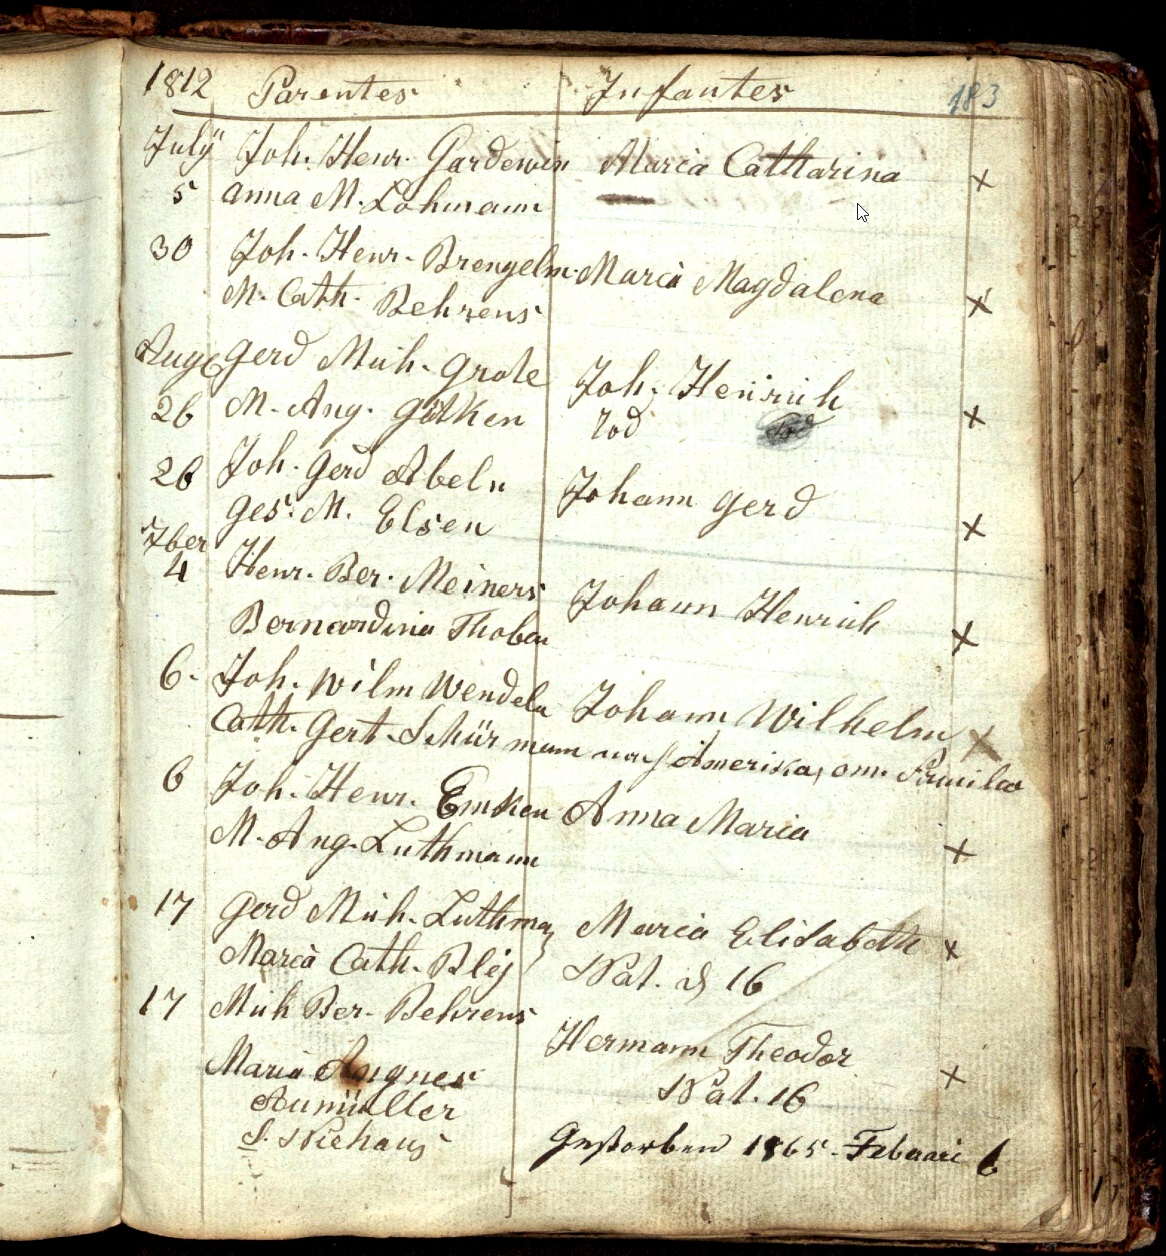 1812 Parentes Infantes 183
July Joh. Henr. Gardewin Maria Catharina ×
5 Anna M. Lohmann
30 Joh. Henr. Brengelm. Maria Magdalena ×
M. Cath. Behrens
Aug Gerd Mich. Grote Joh. Henrich
26 M. Ang. Götken Tod ×
26 Joh. Gerd Abeln Johann Gerd
Ges. M. Elsen ×
7ber
4 Henr. Ber. Meiners Johann Henrich
Bernardina Thoben ×
6. Joh. Wilm Wendeln Johann Wilhelm ×
Cath. Gert. Schürmann nach Amerika, om. Familia
6 Joh. Henr. Emken Anna Maria
M. Ang. Luthmann ×
17 Gerd Mich. Luthman Maria Elisabeth ×
Maria Cath. Bley Nat. d 16
17 Mich Ber. Behrens
Hermann Theodor
Maria Angnes ×
Nat. 16
Aumüller
S. Niehaus
Gestorben 1865. Febuari 6